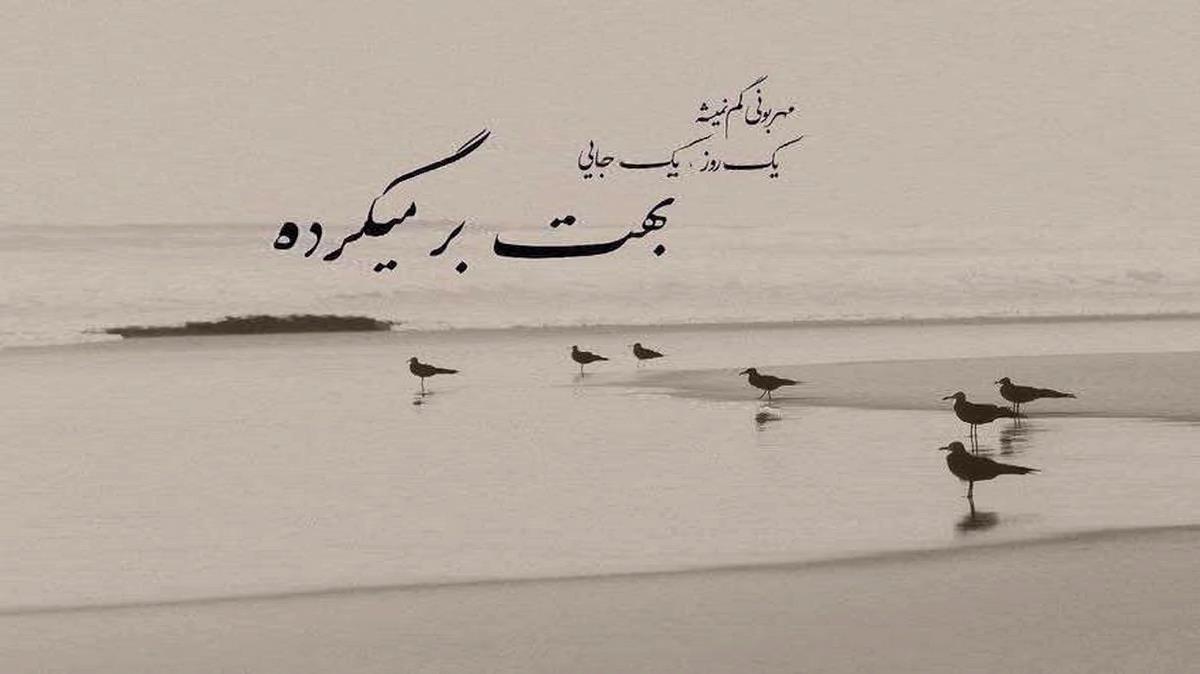 مهربونی گم نمیشه
یک روز، یک جایی
بهت بر میگرده